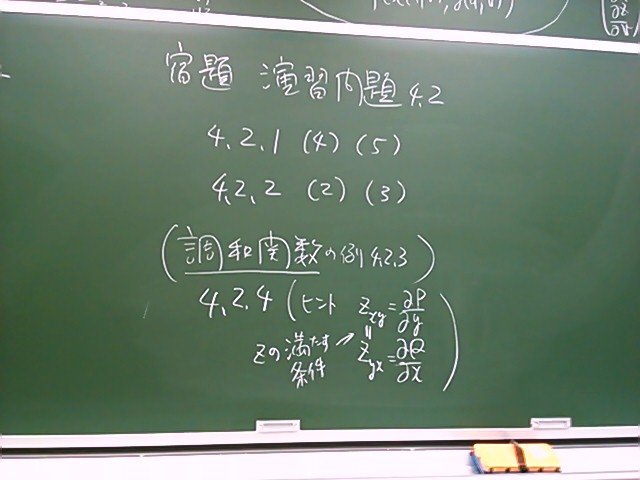 宿題 演習問題 4.2
4.2.1 (4) (5)
4.2.2 (2) (3)
(調和関数の例 4.2.3)
4.2.4 (ヒント z_xy = ∂P/∂y
zの満たす条件 → = z_yx = ∂Q/∂x)